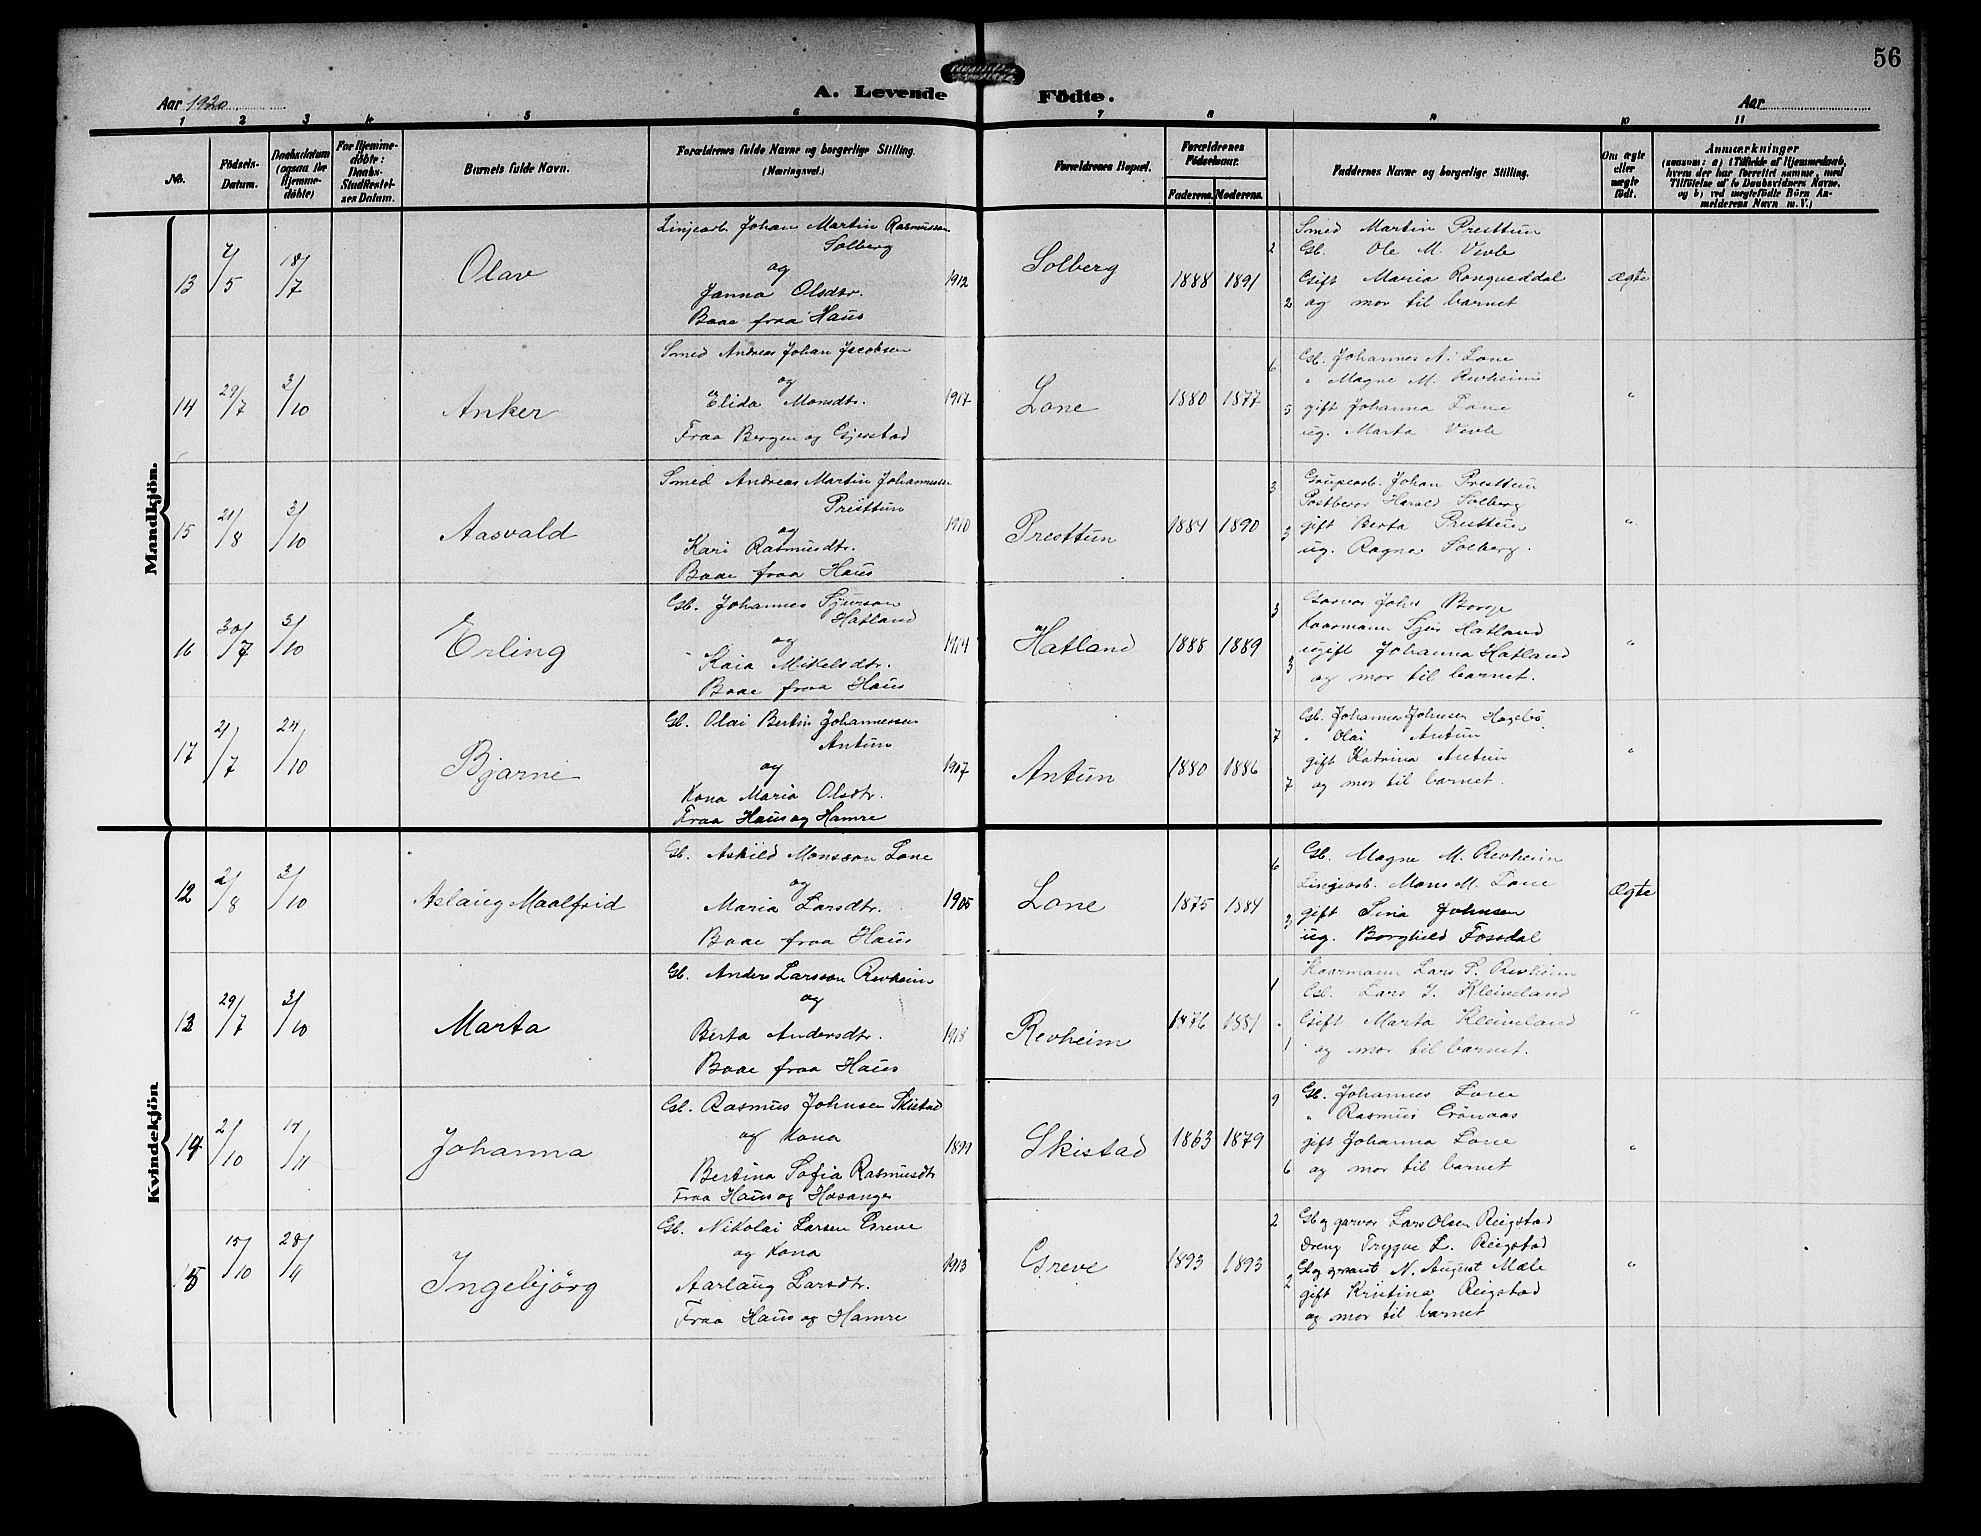 56
Aar 1920
A. Levende Födte.
Aar
1 2 3 4 5 6 7 8 9 10 11
No.
Födsels-Datum.
Daabsdatum (ogsaa for Hjemme-döbte)
For Hjemme-döbte: Daabs-Stadfæstel-ses Datum.
Barnets fulde Navn.
Forældrenes fulde Navne og borgerlige Stilling.
(Næringsvei.)
Forældrenes Bopæl.
Forældrenes Födselsaar.
Faderens. Moderens.
Faddernes Navne og borgerlige Stilling.
Om ægte eller uægte födt.
Anmærkninger
(saasom: a) i Tilfælde af Hjemmedaab, hvem der har forrettet samme, med Tilföielse af to Daabsvidners Navne. og b) ved uægtefödte Börn An-melderens Navn m. V.)
Mandkjön.
13 7/5 18/7 Olav
Linjearb. Johan Martin Rasmussen
Solberg
og
Janna Olsdtr.
Baae fraa Haus
1912 Solberg 1888 1891
2 Smed Martin Presttun
Gb. Ole M. Vevle
Gift Maria Rongveddal
2 og mor til barnet
Ægte
14 29/7 3/10 Anker
Smed Andreas Johan Jacobsen
og
Elida Monsdtr.
Fraa Bergen og Gjerstad
1917 Lone 1880 1877
6 Gb. Johannes A. Lone
" Magne M. Revheim
5 gift Johanna Lone
ug. Marta Vevle
"
15 21/8 3/10 Aasvald
Smed Andreas Martin Johannessen
Presttun
og
Kari Rasmusdtr.
Baae fraa Haus
1910 Presttun 1884 1890
3 Johan Presttun
Harald Solberg
3 gift Berta Presttun
ug. Ragna Solberg.
"
16 30/7 3/10 Erling
Gb. Johannes Sjurson
Hatland
og
Kaia Mikelsdtr.
Baae fraa Haus
1914 Hatland 1888 1889
3 Garvar John Borge
Kaarmann Sjur Hatland
ugift Johanna Hatland
3 og mor til barnet.
"
17 21/7 24/10 Bjarne
Gb. Olai Bertin Johannessen
Antun
og
Kona Maria Olsdtr.
Fraa Haus og Hamre
1907 Antun 1880 1886
Gb. Johannes Johnsen
7 " Olai Antun
gift Katrina Antun
7 og mor til barnet.
"
Kvindekjön
12 2/8 3/10 Aslaug Maalfrid
Gb. Askild Monsson Lone
og
Maria Larsdtr.
Baae fraa Haus
1905 Lone 1875 1884
6 Gb. Magne M. Revheim
Linjearb. Mons M. Lone
3 gift Lina Johnsen
ug. Borghild Fossdal
Ægte
13 29/7 3/10 Marta
Gb. Anders Larsson Revheim
og
Berta Andersdtr.
Baae fraa Haus
1918 Revheim 1876 1881
1 Kaarmann Lars P. Revheim
Gb. Lars J. Kleiveland
Gift Marta Kleiveland
1 og mor til barnet.
"
14 2/10 14/11 Johanna
Gb. Rasmus Johnsen Skistad
og Kona
Bertina Sofia Rasmusdtr
Fraa Haus og Hosanger
1899 Skistad 1863 1879
9 Gb. Johannes Lone
" Rasmus Grönaas
gift Johanna Lone
6 og mor til barnet
"
15 15/10 28/11 Ingebjörg
Gb. Nikolai Larsen Greve
og Kona
Aarlaug Larsdtr.
Fraa Haus og Hamre
1913 Greve 1893 1893
2 Gb og garvar Lars Olsen Reigstad
Dreng Trygve L. Reigstad
N. August Mæle
2 gift Kristina Reigstad
og mor til barnet
"